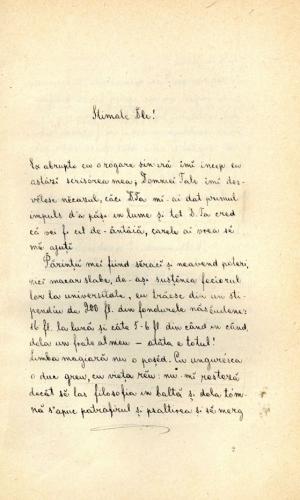 Stimate Dle!
Ex abrupto cu o rogare sinceră îmi încep eu
astăzi scrisórea mea; Domniei Tale îmi des-
vălesc năcazul, căci DTa mi-ai dat primul
impuls d'a păși în lume și tot D.Ta cred
că vei fi cel de-ântâiă, carele ai vrea să
mă ajuți.
Părinții mei fiind săraci și neavend poteri,
nici macar slabe, de-a-și susținea feciorul
lor la universitate, eu trăesc din un sti-
pendiu de 200 fl. din fondurele năsăudene:
16 fl. la lună și câte 5-6 fl din când în când,
dela un frate al meu – atâta e totul!
Limba magiară nu o posed. Cu ungurésca
o duc greu, cu vieța rĕu: nu-mi restéză
decât să las filosofia în baltă și dela tóm-
nă s'apuc patrafirul și psaltirea și să merg
2